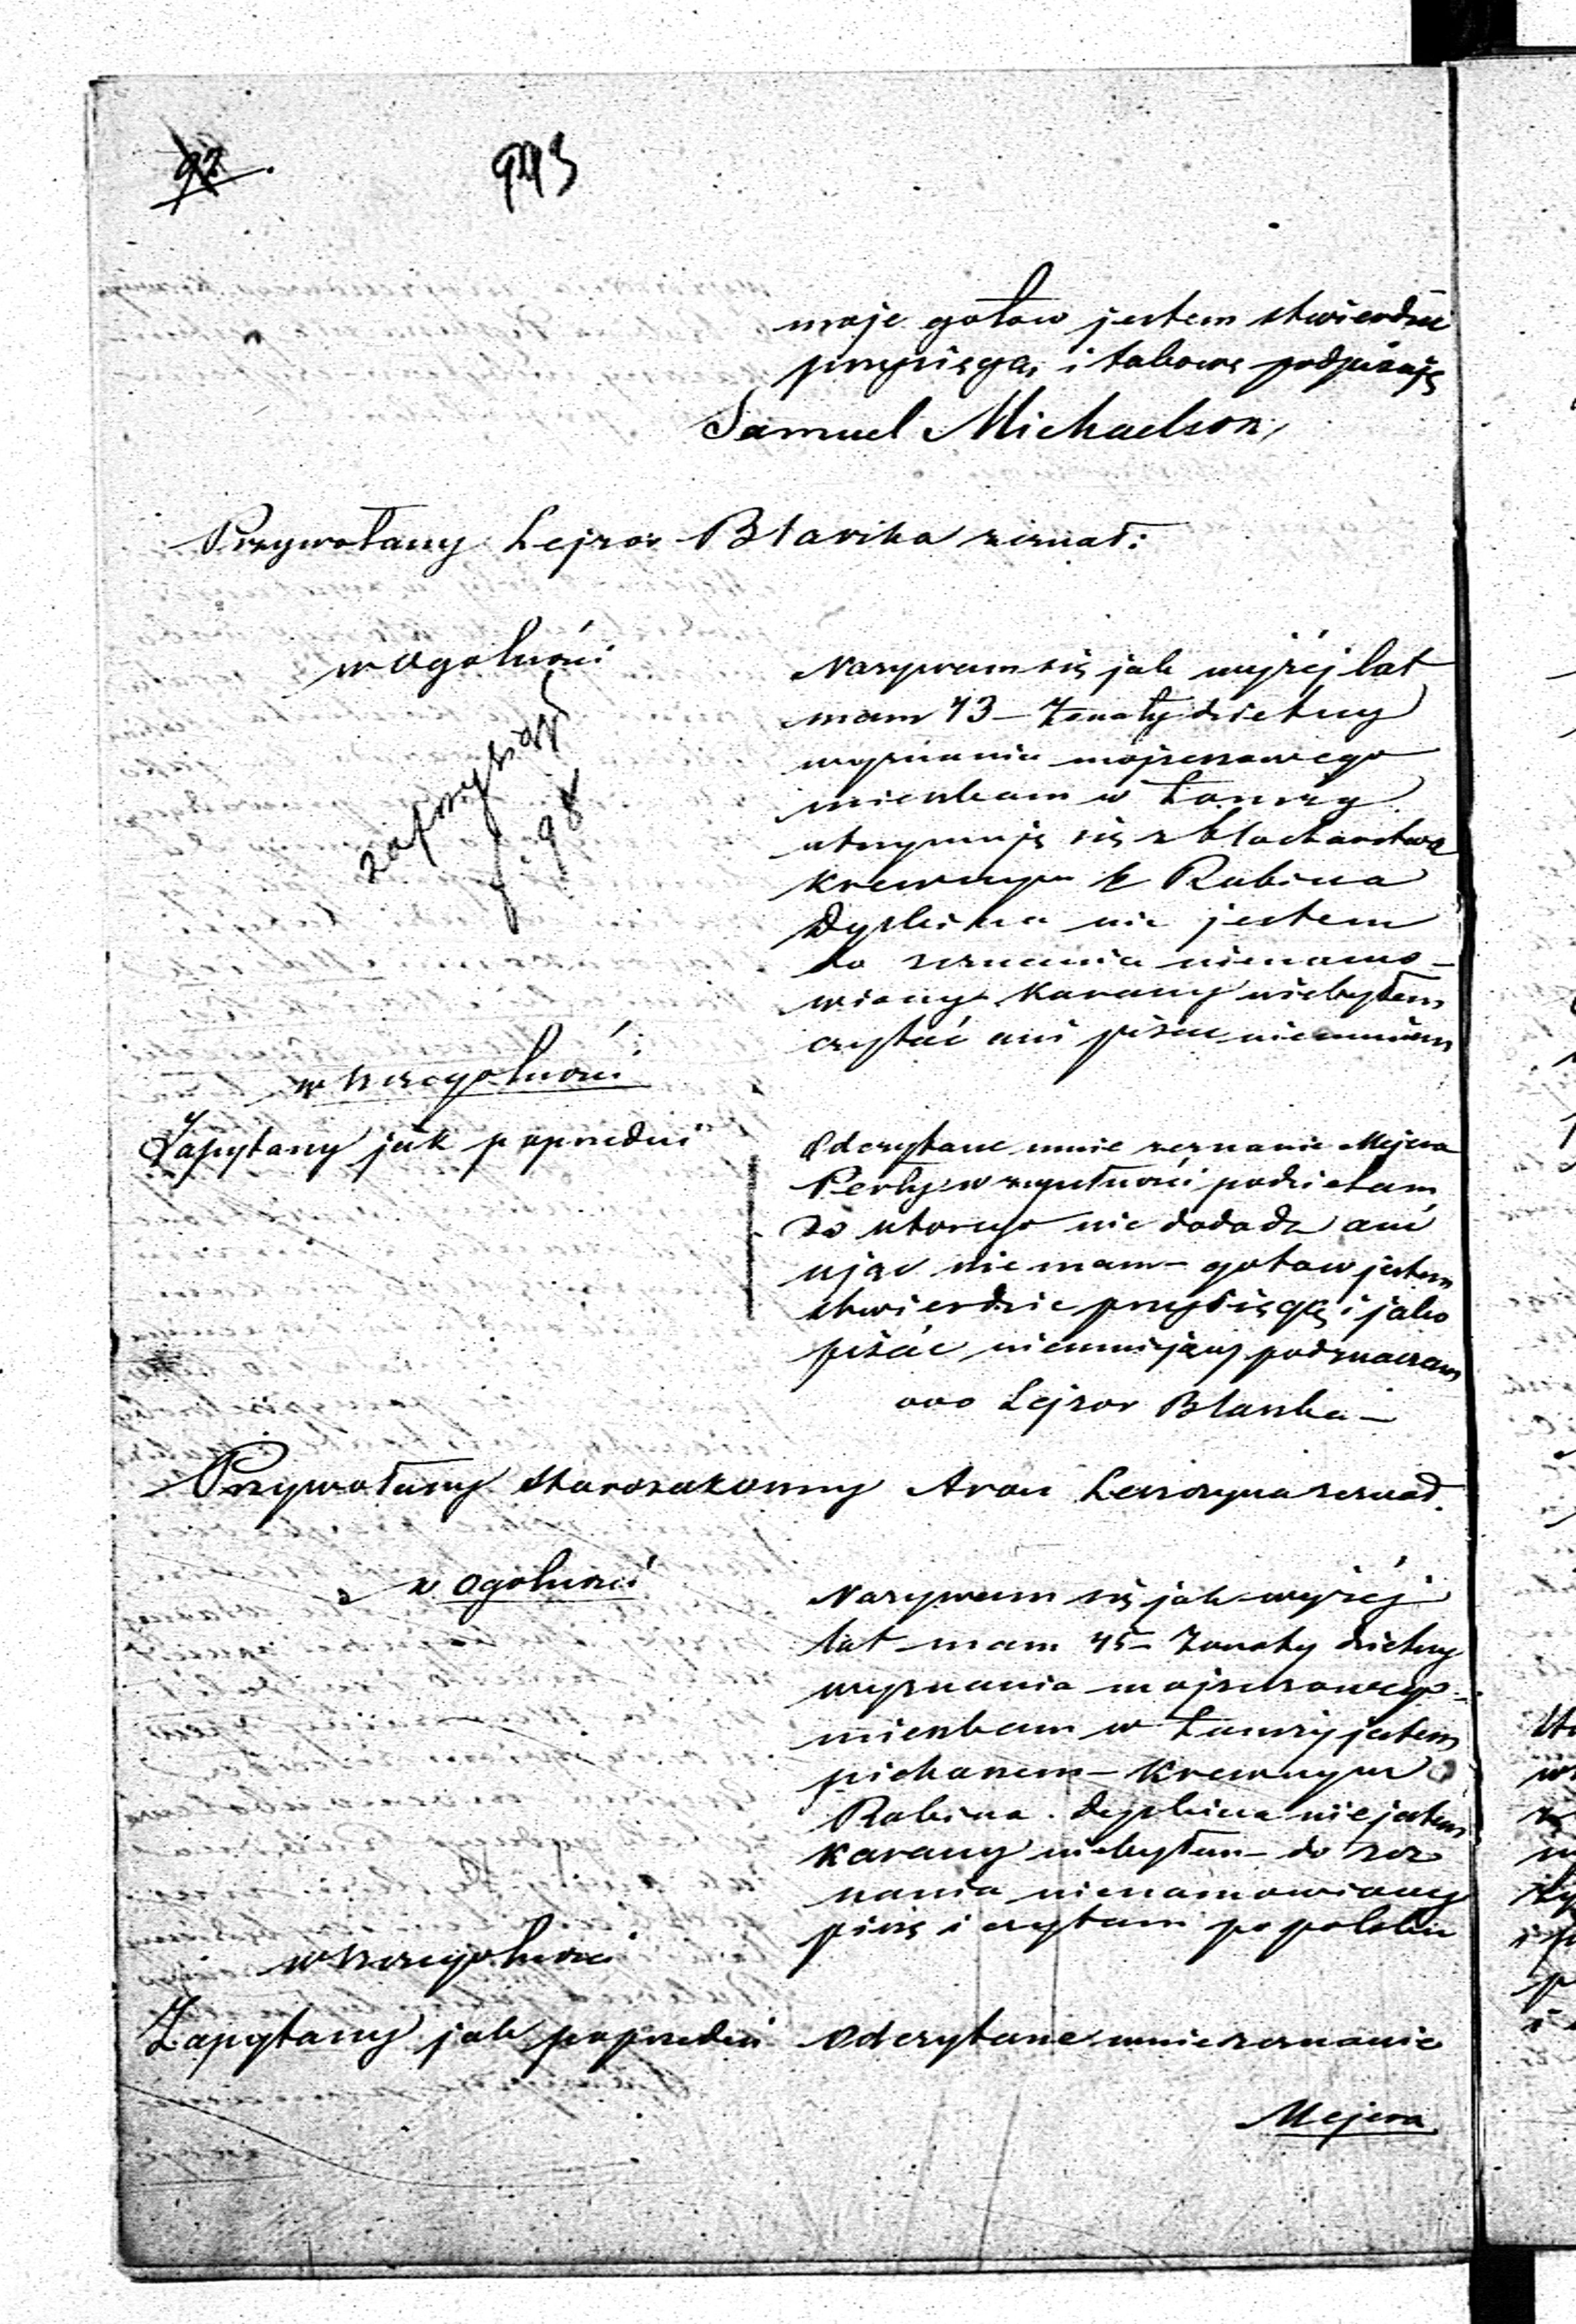 92
993
moje gotow jestem stwierdzić
przysięgą i takowe podpisuję
Samuel Michaelson
Przywołany Lejzor Blaszka zeznał:
w ogolności
zaprzysiągł
f. 98
Nazywam się jak wyżéj lat
mam 43 – Żonaty dzietny
wyznania mojżeszowego
mieszkam w Łomży
utrzymuję się z blacharstwa
krewnym Rubina
Dyskina nie jestem
do zeznania nienamo-
wiony karany niebyłem
czytać ani pisać nieumiem
w szczegolności
Zapytany jak poprzedni
Odczytane mnie zeznanie Mejera
Perły w zupełności podzielam
do ktorego nic dodadz ani
ująć nie mam – gotow jestem
stwierdzic przysięgą i jako
pisać nieumiejący podznaczam
ooo Lejzor Blaszka –
Przywołany starozakonny Aron zeznał.
w ogolności
Nazywam się jak wyżéj
lat mam 45 – Żonaty dzietny
wyznania mojżeszowego
mieszkam w Łomży jestem
piekarzem – krewnym
Rubina Dyskina nie jestem
karany niebyłem – do zez
nania nienamowiony
piszę i czytam po polsku
w szczegolności
Zapytany jak poprzedni
Odczytane mnie zeznanie
Mejera